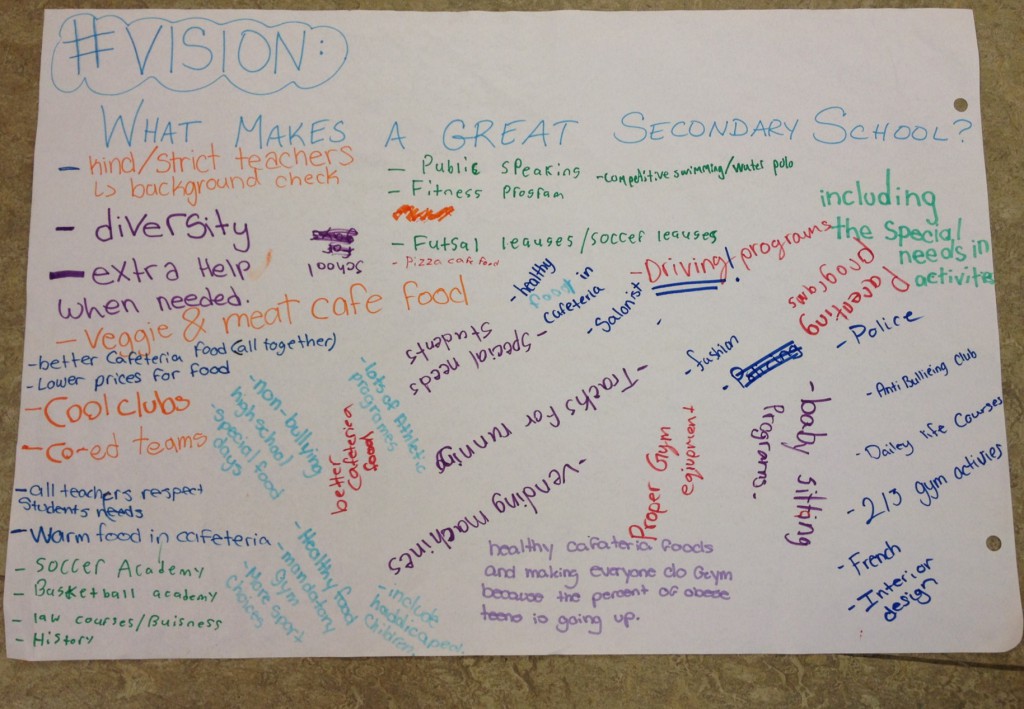 #VISION:
WHAT MAKES A GREAT SECONDARY SCHOOL?
- kind/strict teachers
↳ background check
- diversity
- extra Help
when needed.
school
- Veggie & meat cafe food
- better Cafeteria food (all together)
- Lower prices for food
- Cool clubs
- Co-ed teams
- all teachers respect
Students needs
- Warm food in cafeteria
- Soccer Academy
- Basketball academy
- law courses/Buisness
- History
- Public speaking
- competitive swimming/water polo
- Fitness Program
- Futsal leauses/soccer leauses
- Pizza cafe food
- healthy
food in
cafeteria
- Salonist
- Driving! programs
Parenting
programs
including
the special
needs in
activites
- Special needs
students
- Tracks for running
- Vending machines
- lots of Athletic
programmes
- non-bullying
high school
- special food
days
better
Cafeteria
food
- Healthy food
- mandatory
gym
- More sport
choices
- include
haddicaped
children
healthy cafateria foods
and making everyone do Gym
because the percent of obese
teens is going up.
Proper Gym
equipment
- baby sitting
Programs.
- fashion
- Police
- Anti Bullieing Club
- Dailey life Courses
- 2/3 gym activies
- French
- Interior
design